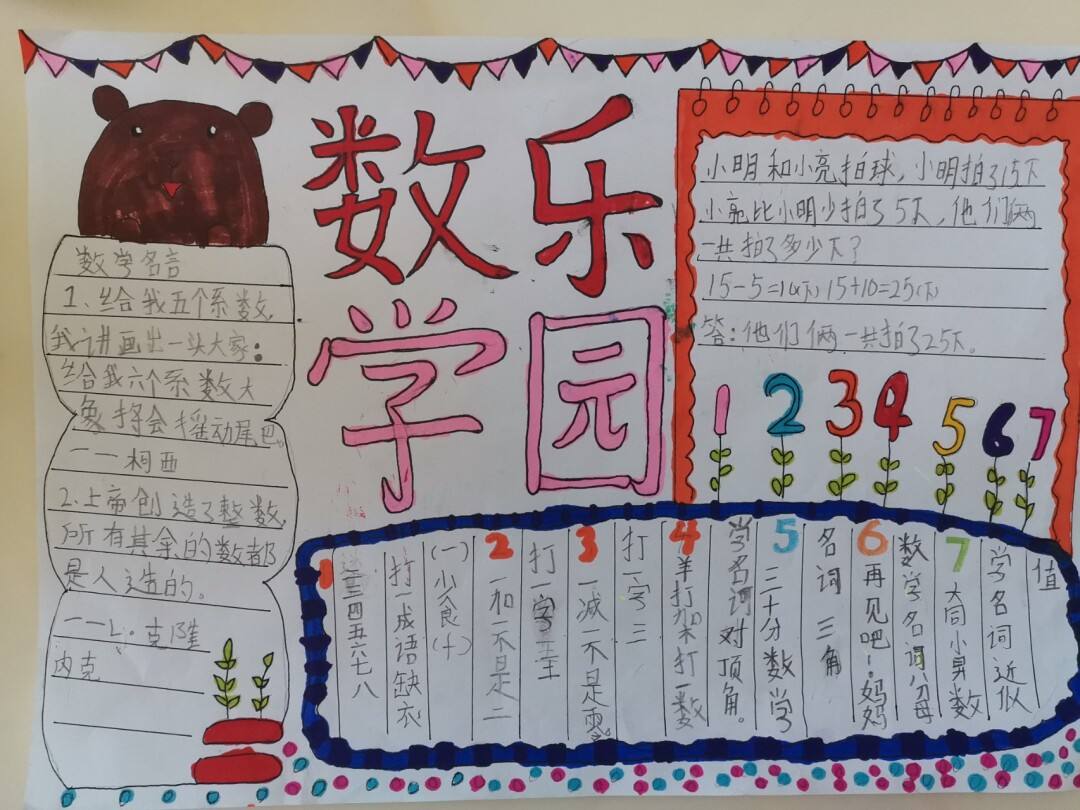 数乐
学园
数学名言
1、给我五个系数,
我讲画出一头大家:
给我六个系数大
象将会摇动尾巴
——柯西
2.上帝创造了整数,
所有其余的数都
是人造的。
——L·克隆
内克
小明和小亮拍球,小明拍了15下
小亮比小明少拍了5下,他们俩
一共拍了多少下?
15-5=10(下) 15+10=25(下)
答:他们俩一共拍了25下。
1 2 3 4 5 6 7
1
二三四五六七八
打一成语缺衣
(一)少食(十)
2
一加一不是二
打一字王
3
一减一不是零
打一字三
4
羊打架打数
学名词对顶角。
5
三十分数学
名词三角
6
再见吧!妈妈
数学名词分母
7
大同小异数
学名词近似
值